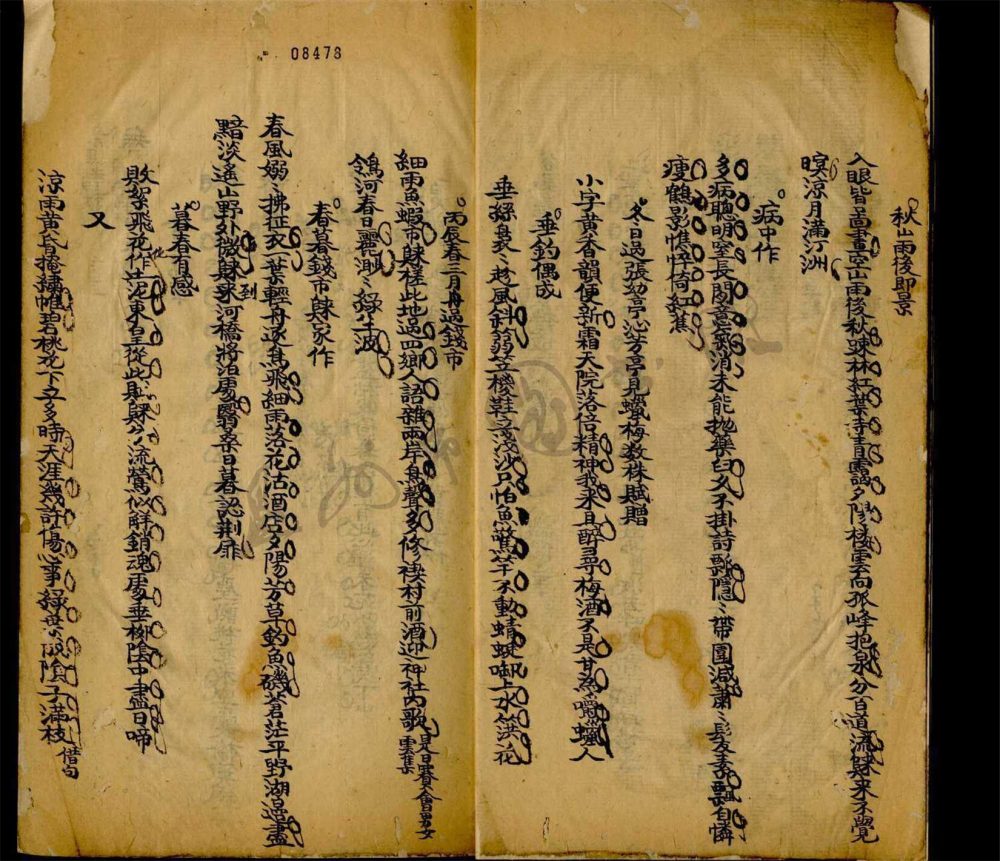 08473
秋山雨後即景
入眼皆畫畫空山雨後秋疎林紅葉寺青靄夕陽樓雲向孤峰抱泉分百道流歸來不覺
暝凉月滿汀洲
病中作
多病聰明空長閒意氣消未能抛藥臼久不掛詩瓢隱〻帶圍減蕭〻髮素飄自憐
瘦鶴影憔悴倚紅蕉
冬日過張幼亭沁芳亭見蠟梅数株賦贈
小字黄香韻便新霜天院落倍精神我来且醉尋梅酒不是甘為嚼蠟人
垂釣偶成
垂絲裊〻趂風斜蒻笠椶鞋淺沙只怕魚驚竿不動蜻蜓啣上水葓花
丙辰春三月舟過錢市
細雨魚蝦市歸槎此地過四鄉人語雜兩岸鳥聲多修禊村前酒迎神社內歌是日賽會男女雲集
鴒河春日麗渺〻綠生波
春暮錢市歸家作
春風嫋〻拂征衣一葉輕舟逐鳥飛細雨落花沽酒店夕陽芳草釣魚磯蒼茫平野湖邊盡
黯淡遙山野外微歸到河橋將泊處翳桑日暮認荆扉
暮春有感
敗絮飛花作泥東皇從此與歸兮流鶯似解銷魂處垂柳陰中盡日啼
又
凉雨黄昏掩繡帷碧桃花下立多時天涯幾許傷心事綠葉成陰子滿枝借句